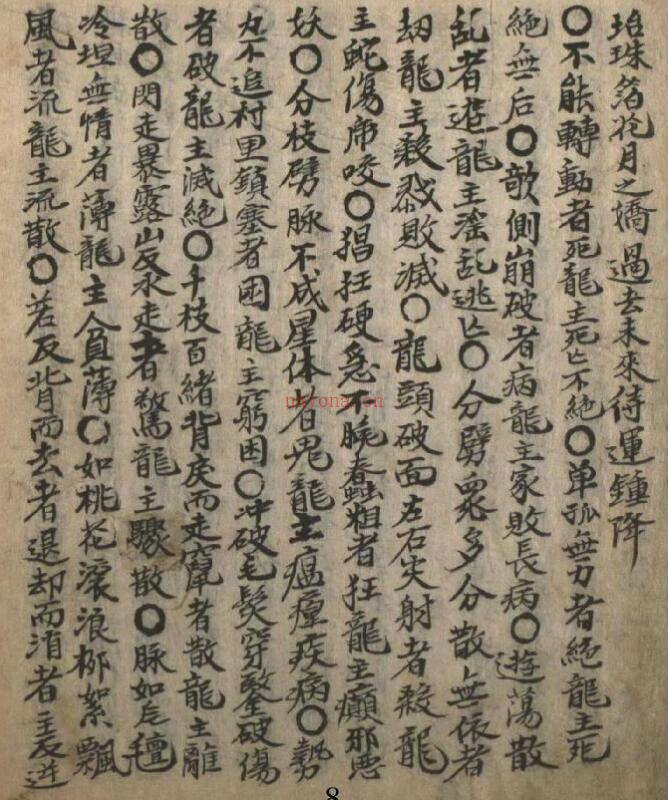 珆珠落花月之嬌過去未來待運鍾降
〇不能轉動者死龍主死亡不絕〇单孤無力者絕龍主死
絕無后〇欹側崩破者病龍主家敗長病〇遊蕩散
乱者遊龍主淫乱逃亡〇分劈衆多分散無依者
刼龍主殺戏敗滅〇龍頭破面左右尖射者殺龍
主蛇傷虎咬〇猖狂硬急不脫蠢粗者狂龍主癲邪悪
妖〇分枝劈脉不成星体者鬼龍主瘟㾮疾病〇勢
力不追村里鎖塞者困龍主窮困〇冲破毛髮穿鑿破傷
者破龍主滅絕〇千枝百緒背戾而走竄者散龍主離
散〇閃走暴露山反水走者驚龍主驟散〇脉如毛氊
冷坦無情者薄龍主人負薄〇如桃花滚浪栁絮飄
風者流龍主流散〇若反背而去者退却而消者主反逆
8